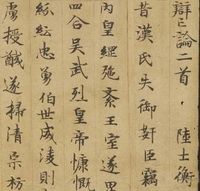 辯亡論二首 陸士衡
昔漢氏失御姧臣竊
內皇綱弛紊王室遂卑
四合吳武烈皇帝慷慨
紛紜忠勇伯世威淩則
虜授馘遂掃清宗祊